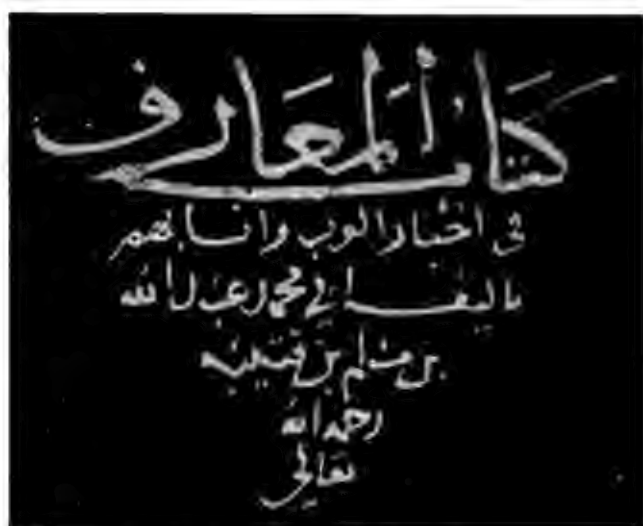 كتاب المعارف
في اخبار العرب وانسابهم
تاليف ابي محمد عبد الله
بن مسلم بن قتيبة
رحمه الله
تعالى